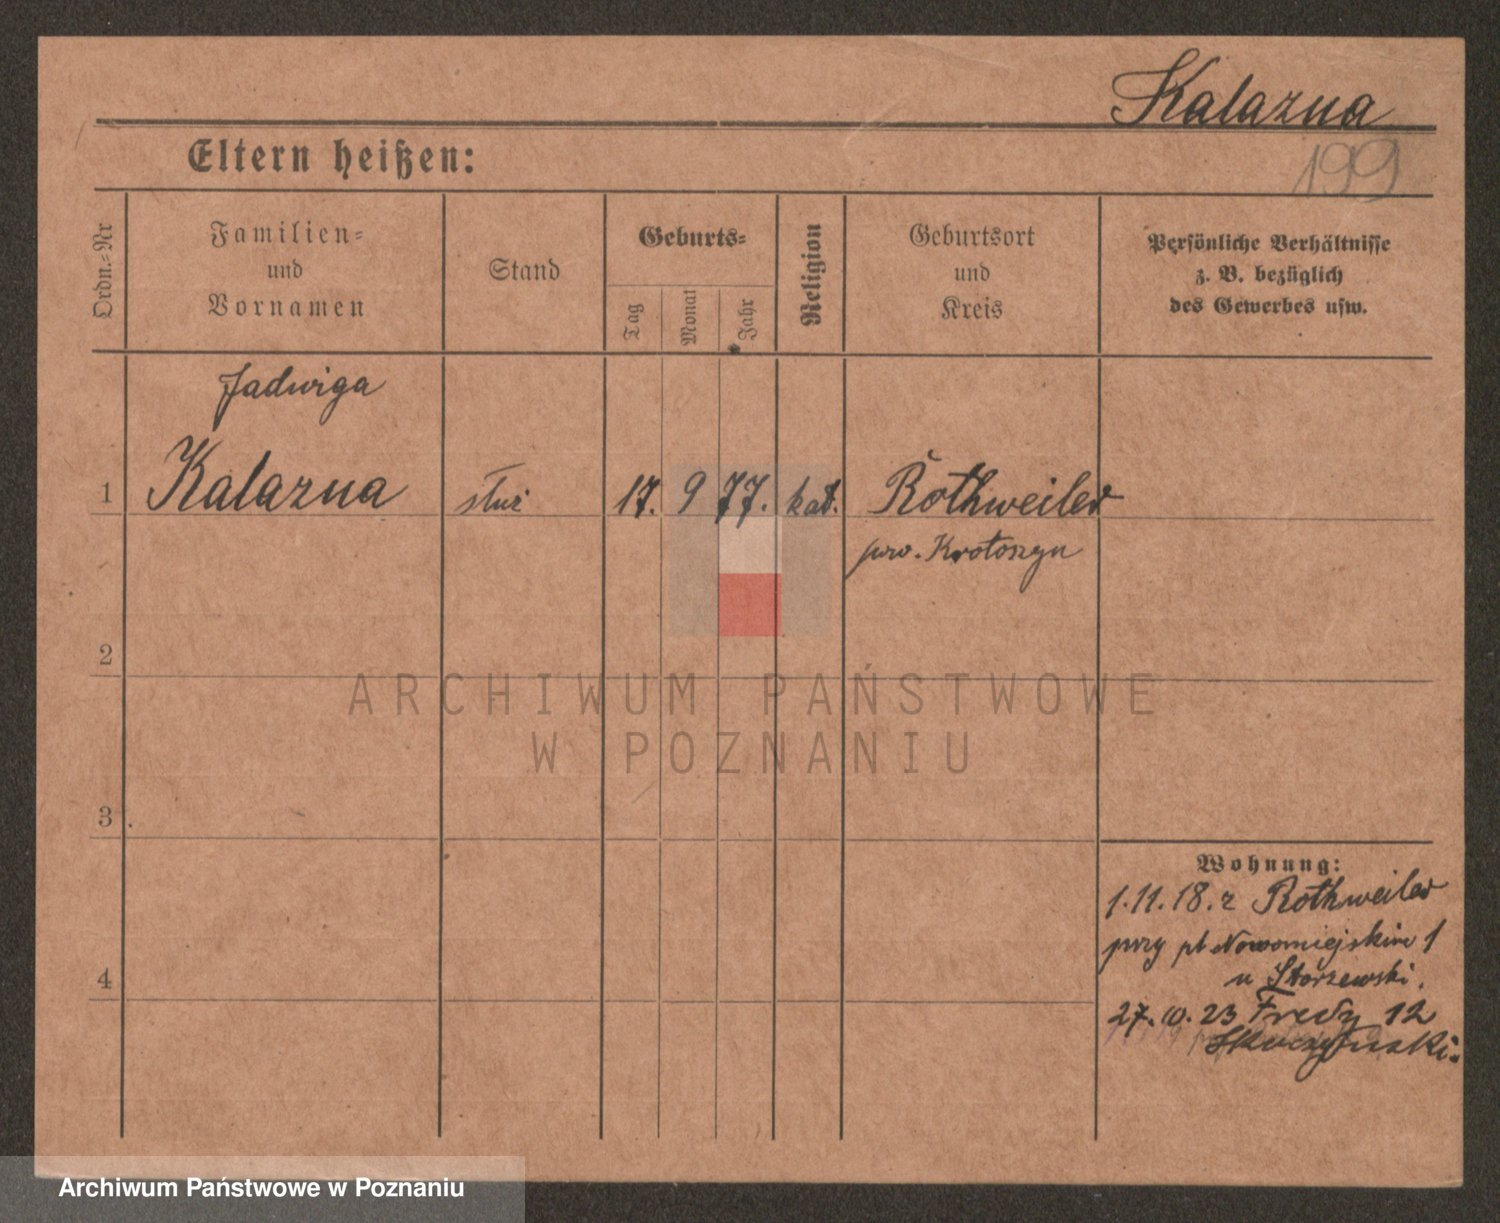 Kalazna
199
Eltern heißen:
Ordn.-Nr
Familien-
und
Vornamen
Stand
Geburts-
Tag
Monat
Jahr
Religion
Geburtsort
und
Kreis
Persönliche Verhältnisse
z. B. bezüglich
des Gewerbes usw.
Jadwiga
1 Kalazna służ 17. 9 77. kat. Rothweiler
pow. Krotoszyn
2
ARCHIWUM PAŃSTWOWE
W POZNANIU
3
Wohnung:
1.11.18. z Rothweiler
przy pl Nowomiejskim 1
u Storzewski.
4
27.10.23 Fredry 12
Archiwum Państwowe w Poznaniu